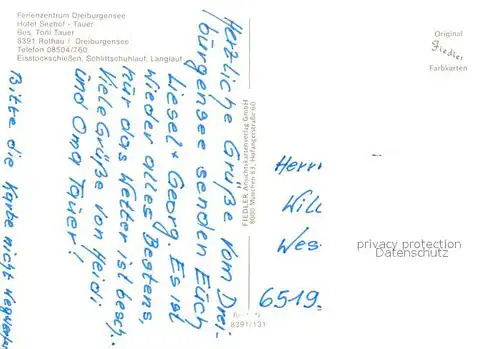 Ferienzentrum Dreiburgensee
Hotel Seehof - Tauer
Bes. Toni Tauer
8391 Rothau / Dreiburgensee
Telefon 08504/760
Eisstockschießen, Schlittschuhlauf, Langlauf
Original
Fiedler
Farbkarten
Herzliche Grüße vom Drei-
burgensee senden Euch
Liesel + Georg. Es ist
wieder alles Bestens,
nur das Wetter ist besch.
Viele Grüße von Heidi
und Oma Tauer!
Bitte die Karte nicht wegwerfen
FIEDLER Ansichtskartenverlag GmbH
8000 München 83, Hofangerstraße 60
Herrn
Will
Wes
6519
privacy protection
Datenschutz
8391/131